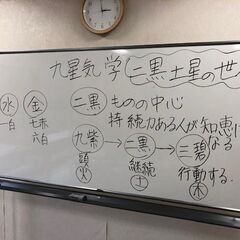 九星気学(二黒土星の世
水 金 二黒 ものの中心
一白 七赤 六白 持続力ある人が知恵に
なる
九紫→二黒→三碧
頭 継続 行動する
火 土 木